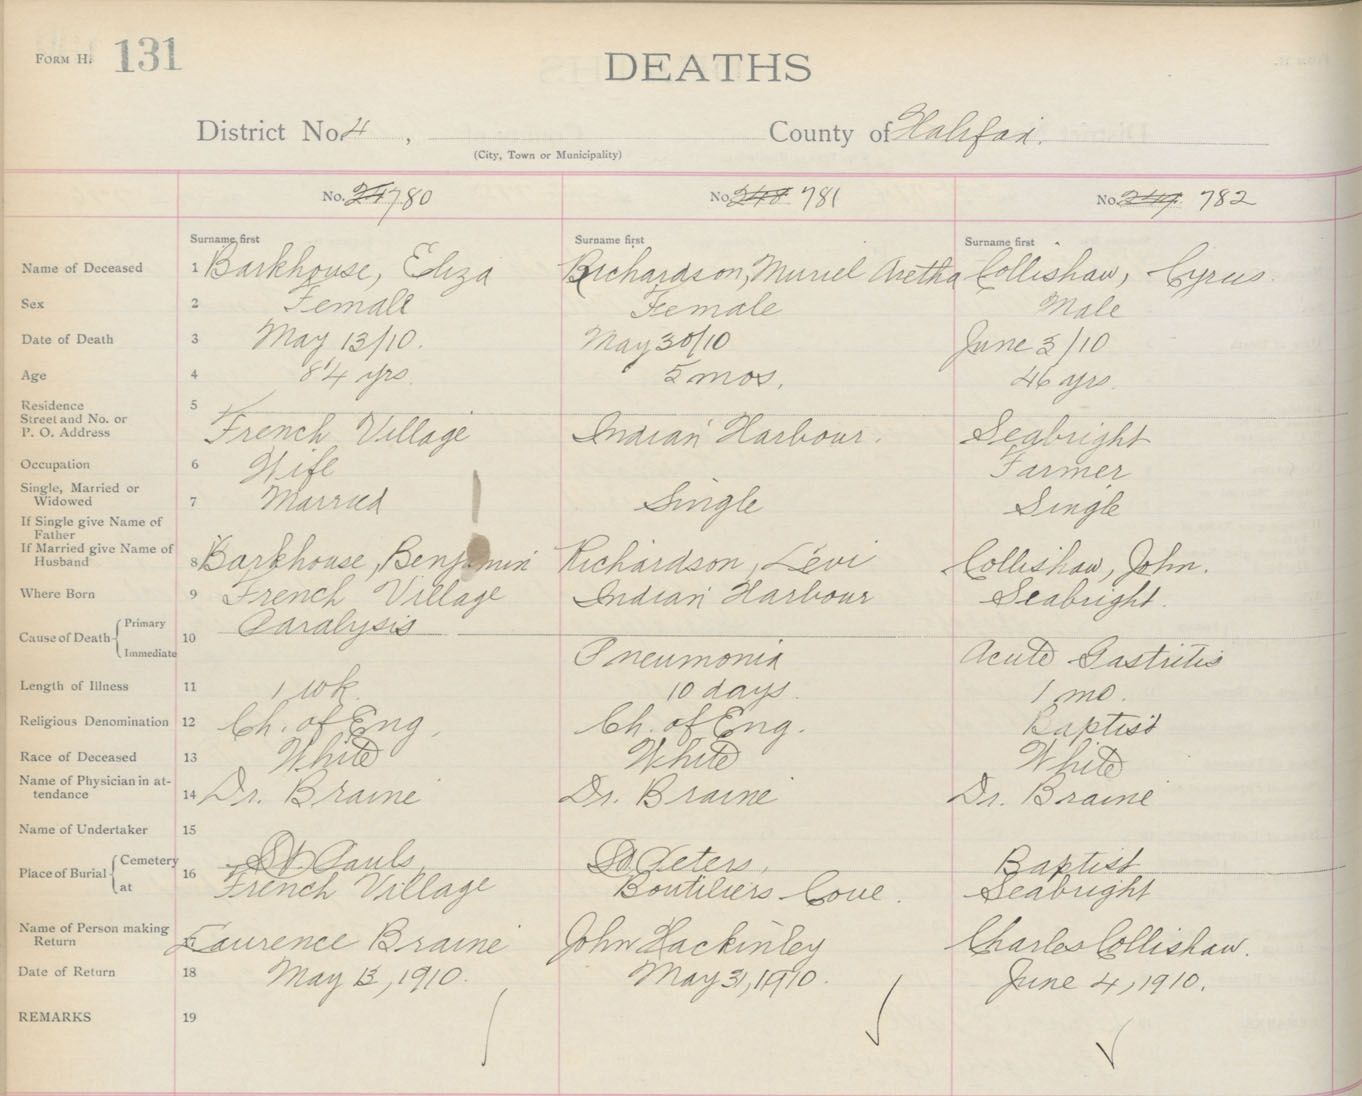 FORM H. 131
DEATHS
District No. 4 , County of Halifax.
(City, Town or Municipality)
No. 780 No. 781 No. 782
Surname first Surname first Surname first
Name of Deceased 1 Barkhouse, Eliza Richardson, Muriel Aretha Collishaw, Cyrus.
Sex 2 Female Female Male
Date of Death 3 May 13/10. May 30/10 June 3/10
Age 4 84 yrs. 5 mos. 46 yrs.
Residence 5
Street and No. or
P. O. Address French Village Indian Harbour. Seabright
Occupation 6 Wife Farmer
Single, Married or
Widowed 7 Married Single Single
If Single give Name of
Father
If Married give Name of
Husband 8 Barkhouse, Benjamin Richardson, Levi Collishaw, John.
Where Born 9 French Village Indian Harbour Seabright.
Cause of Death Primary Paralysis
10
Immediate Pneumonia Acute Gastritis
Length of Illness 11 1 wk 10 days. 1 mo.
Religious Denomination 12 Ch. of Eng. Ch. of Eng. Baptist
Race of Deceased 13 White White White
Name of Physician in at-
tendance 14 Dr. Braine Dr. Braine Dr. Braine
Name of Undertaker 15
Place of Burial Cemetery St. Pauls, St. Peters, Baptist
16
at French Village Boutiliers Cove. Seabright
Name of Person making
Return 17 Laurence Braine John Hackinley Charles Collishaw.
Date of Return 18 May 13, 1910. May 31, 1910. June 4, 1910.
REMARKS 19